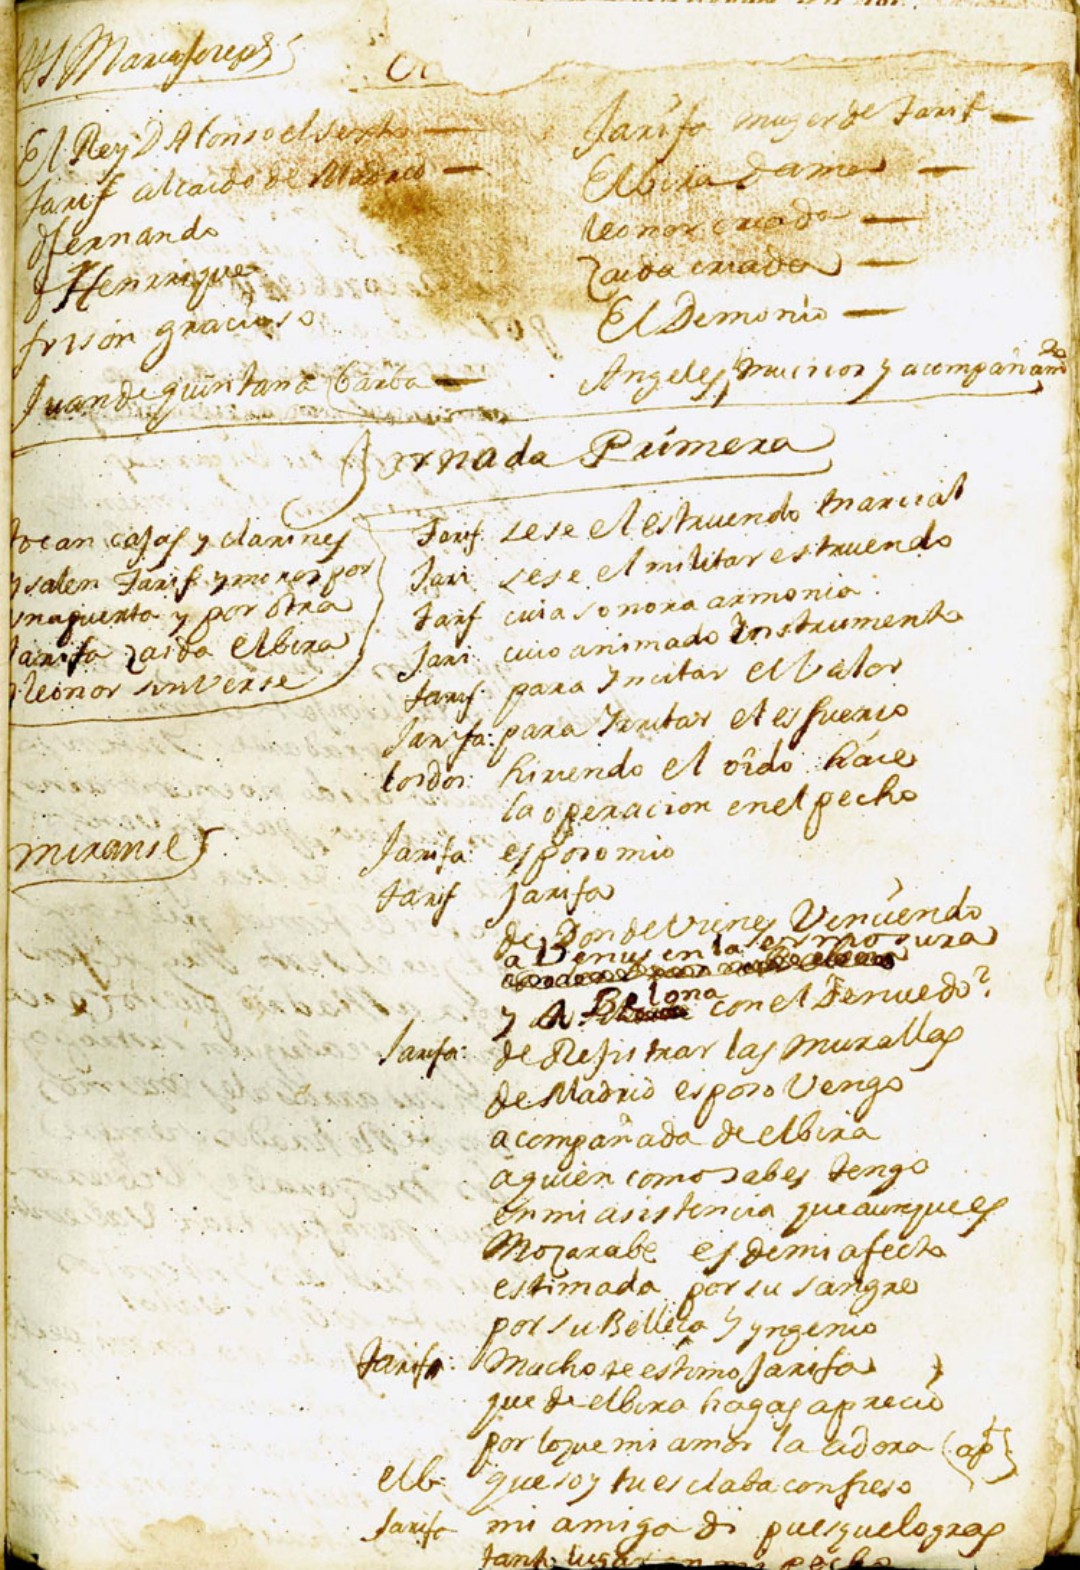 El Rey D Alonso el sexto
Tarif alcaide de Madrid
d fernando
d Henrrique
frison gracioso
Juan de quintana barba
Jarifa muger de Tarif
Elbira dama
leonor criada
Zaida criada
El Demonio
Angeles, musicos y acompañamdo
Jornada Primera
tocan cajas y clarines
y salen Tarif y moros por
una puerta y por otra
Jarifa zaida elbira
y leonor sin verse
Tarif sese el estruendo marcial
Jari sese el militar estruendo
tarif cuia sonora armonia
Jari: cuio animado Instrumento
tarif. para Yncitar el balor
Jarifa: para Irritar el esfuerço
los dos: hiriendo el oido háce
la operacion en el pecho
miranse
Jarifa: esposo mio
tarif Jarifa
de Donde vienes Venciendo
a Benus en la ermosura
y A Belona con el Denuedo?
Jarifa: de Rejistrar las murallas
de Madrid esposo Vengo
acompañada de elbira
a quien como sabes tengo
en mi asistencia que aunque es
Mozarabe es de mi afecto
estimada por su sangre
por su Belleça Y yngenio
Mucho te estimo Jarifa
que de elbira hagas aprecio
por lo que mi amor la adora (ap)
elb que soy tu esclaba confieso
Jarifa mi amiga di pues que logras
tanto lugar en mi pecho